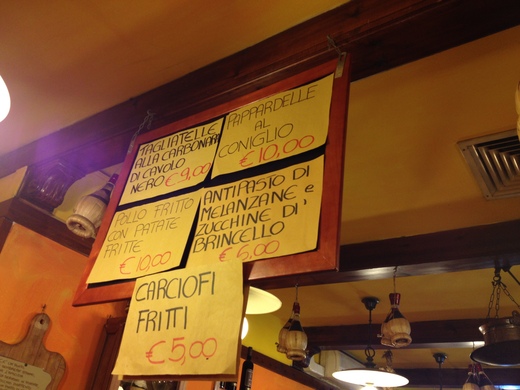 TAGLIATELLE
ALLA CARBONARA
DI CAVOLO
NERO €9,00
PAPPARDELLE
AL
CONIGLIO
€10,00
POLLO FRITTO
CON PATATE
FRITTE
€10,00
ANTIPASTO DI
MELANZANE e
ZUCCHINE DI'
BRINCELLO
€5,00
CARCIOFI
FRITTI
€5,00